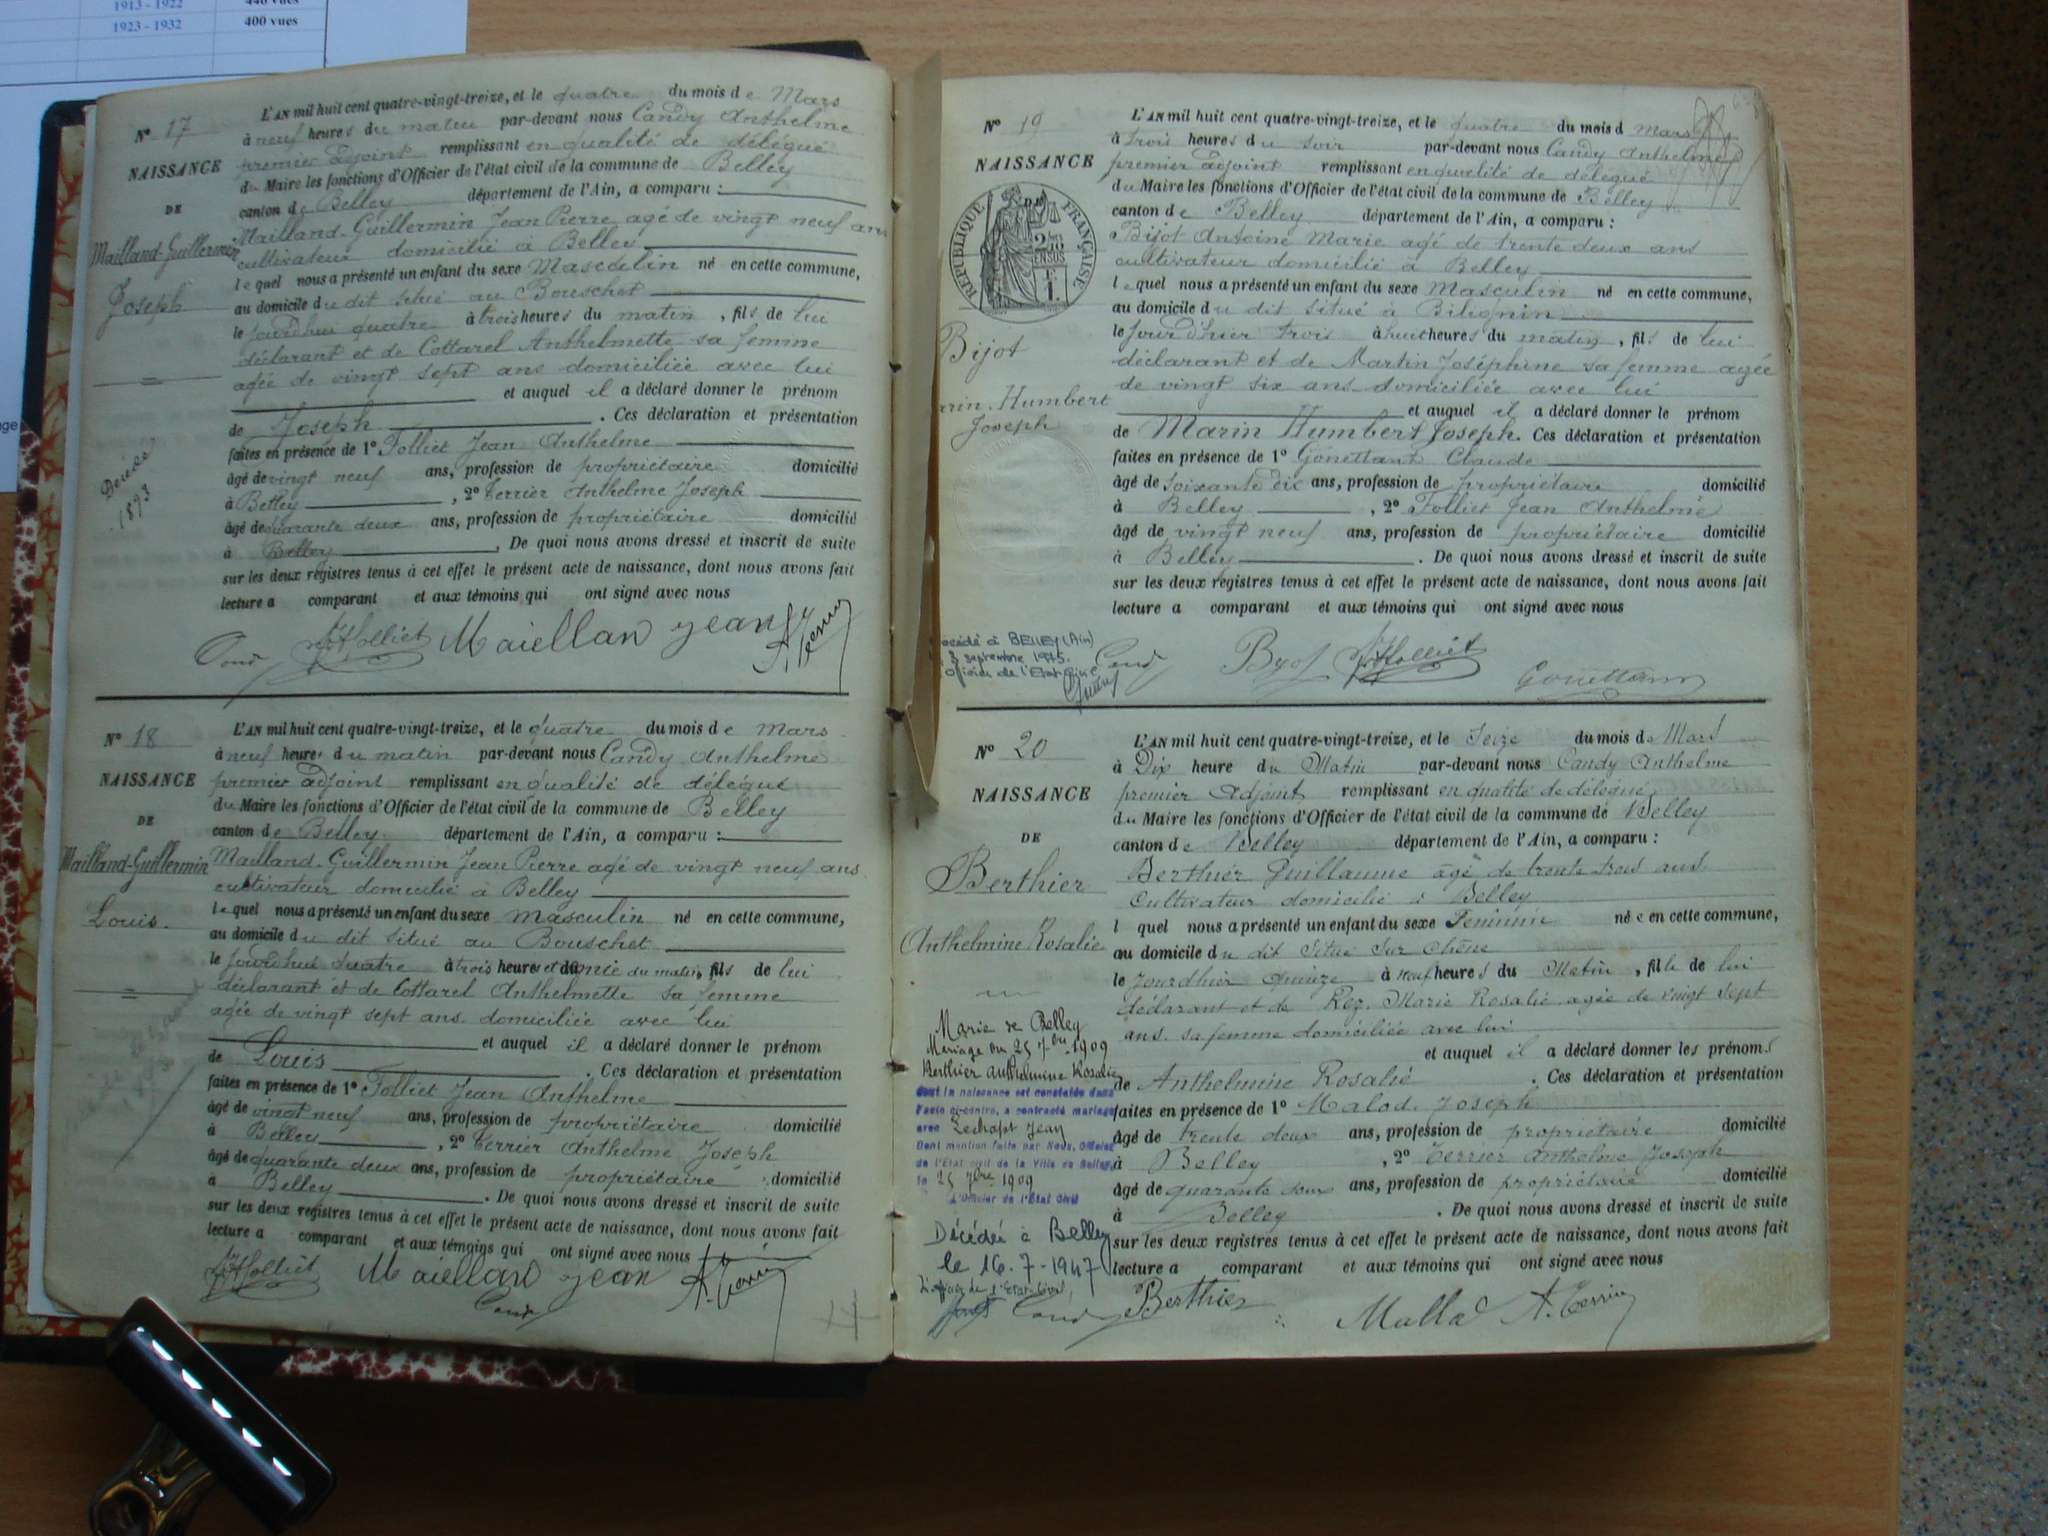 1913 - 1922 440 vues
1923 - 1932 400 vues
N° 17
NAISSANCE
DE
Mailland-Guillermin
Joseph
Décédé
1893
L'AN mil huit cent quatre-vingt-treize, et le quatre du mois de Mars
à neuf heures du matin par-devant nous Candy Anthelme
premier adjoint remplissant en qualité de délégué
du Maire les fonctions d'Officier de l'état civil de la commune de Belley
canton de Belley département de l'Ain, a comparu :
Mailland-Guillermin Jean Pierre agé de vingt neuf ans
cultivateur domicilié à Belley
lequel nous a présenté un enfant du sexe Masculin né en cette commune,
au domicile du dit situé au Bouschet
le jourdhui quatre à trois heures du matin, fils de lui
déclarant et de Cottarel Anthelmette sa femme
agée de vingt sept ans domiciliée avec lui
et auquel il a déclaré donner le prénom
de Joseph. Ces déclaration et présentation
faites en présence de 1° Folliet Jean Anthelme
âgé de vingt neuf ans, profession de propriétaire domicilié
à Belley, 2° Terrier Anthelme Joseph
âgé de quarante deux ans, profession de propriétaire domicilié
à Belley. De quoi nous avons dressé et inscrit de suite
sur les deux registres tenus à cet effet le présent acte de naissance, dont nous avons fait
lecture a comparant et aux témoins qui ont signé avec nous
Cand JAFolliet Maiellan jean
N° 18
NAISSANCE
DE
Mailland-Guillermin
Louis.
L'AN mil huit cent quatre-vingt-treize, et le quatre du mois de Mars
à neuf heures du matin par-devant nous Candy Anthelme
premier adjoint remplissant en qualité de délégué
du Maire les fonctions d'Officier de l'état civil de la commune de Belley
canton de Belley. département de l'Ain, a comparu :
Mailland-Guillermin Jean Pierre agé de vingt neuf ans
cultivateur domicilié à Belley
lequel nous a présenté un enfant du sexe masculin né en cette commune,
au domicile du dit situé au Bouschet
le jourdhui quatre à trois heures et demie du matin, fils de lui
déclarant et de Cottarel Anthelmette sa femme
agée de vingt sept ans domiciliée avec lui
et auquel il a déclaré donner le prénom
de Louis. Ces déclaration et présentation
faites en présence de 1° Folliet Jean Anthelme
âgé de vingt neuf ans, profession de propriétaire domicilié
à Belley, 2° Terrier Anthelme Joseph
âgé de quarante deux ans, profession de propriétaire domicilié
à Belley. De quoi nous avons dressé et inscrit de suite
sur les deux registres tenus à cet effet le présent acte de naissance, dont nous avons fait
lecture a comparant et aux témoins qui ont signé avec nous
JAFolliet Maiellan jean A. Terrier
Cand
N° 19
NAISSANCE
RÉPUBLIQUE FRANÇAISE
Bijot
Humbert
Joseph
BELLEY (Ain)
septembre 1975.
Officier de l'Etat Civil
L'AN mil huit cent quatre-vingt-treize, et le quatre du mois d Mars
à trois heures du soir par-devant nous Candy Anthelme
premier adjoint remplissant en qualité de délégué
du Maire les fonctions d'Officier de l'état civil de la commune de Belley
canton de Belley département de l'Ain, a comparu :
Bijot Antoine Marie agé de trente deux ans
cultivateur domicilié à Belley
lequel nous a présenté un enfant du sexe Masculin né en cette commune,
au domicile du dit situé à Bilignin
le jour d'hier trois à huit heures du matin, fils de lui
déclarant et de Martin Joséphine sa femme agée
de vingt six ans domiciliée avec lui
et auquel il a déclaré donner le prénom
de Marin Humbert Joseph. Ces déclaration et présentation
faites en présence de 1° Gonettant Claude
âgé de soixante dix ans, profession de propriétaire domicilié
à Belley, 2° Folliet Jean Anthelme
âgé de vingt neuf ans, profession de propriétaire domicilié
à Belley. De quoi nous avons dressé et inscrit de suite
sur les deux registres tenus à cet effet le présent acte de naissance, dont nous avons fait
lecture a comparant et aux témoins qui ont signé avec nous
Cand Byot JAFolliet Gonettant
N° 20
NAISSANCE
DE
Berthier
Anthelmine Rosalie
Mariage du 25 7bre 1909
Berthier Anthelmine Rosalie
dont la naissance est constatée dans
l'acte ci-contre, a contracté mariage
avec Lechapt Jean
Dont mention faite par Nous, Officier
de l'État civil de la Ville de Belley
le 25 7bre 1909
L'Officier de l'État Civil
Décédée à Belley
le 16.7-1947
L'Officier de l'Etat Civil,
L'AN mil huit cent quatre-vingt-treize, et le Seize du mois de Mars
à Dix heure du Matin par-devant nous Candy Anthelme
premier Adjoint remplissant en qualité de délégué
du Maire les fonctions d'Officier de l'état civil de la commune de Belley
canton de Belley département de l'Ain, a comparu :
Berthier Guillaume agé de trente trois ans
Cultivateur domicilié à Belley
l quel nous a présenté un enfant du sexe Féminin née en cette commune,
au domicile du dit Situé Sur Chêne
le jourdhier quinze à neuf heures du Matin, fille de lui
déclarant et de Rey Marie Rosalie agée de vingt sept
ans sa femme domiciliée avec lui
et auquel il a déclaré donner les prénoms
de Anthelmine Rosalie. Ces déclaration et présentation
faites en présence de 1° Malod Joseph
âgé de trente deux ans, profession de propriétaire domicilié
à Belley, 2° Terrier Anthelme Joseph
âgé de quarante deux ans, profession de propriétaire domicilié
à Belley. De quoi nous avons dressé et inscrit de suite
sur les deux registres tenus à cet effet le présent acte de naissance, dont nous avons fait
lecture a comparant et aux témoins qui ont signé avec nous
Cand Berthier Mallod A. Terrier